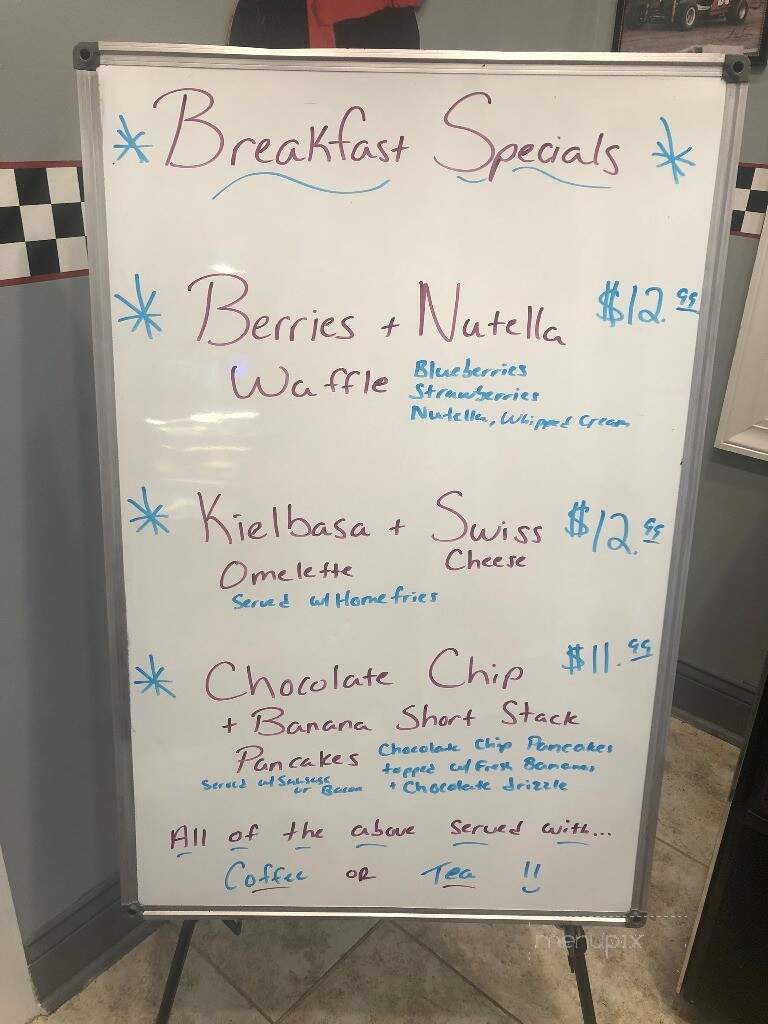 Breakfast Specials
Berries + Nutella $12.99
Waffle Blueberries
Strawberries
Nutella, Whipped Cream
Kielbasa + Swiss $12.99
Omelette Cheese
Served w/ Homefries
Chocolate Chip $11.99
+ Banana Short Stack
Pancakes Chocolate Chip Pancakes
topped w/ Fresh Bananas
+ Chocolate drizzle
Served w/ Sausage
or Bacon
All of the above served with...
Coffee OR Tea !!
menupix